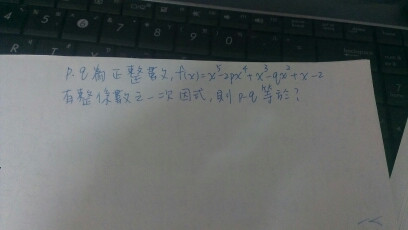 p.q為正整數, f(x)=x⁵-2px⁴+x³-qx²+x-2
有整係數之一次因式,則p-q等於?